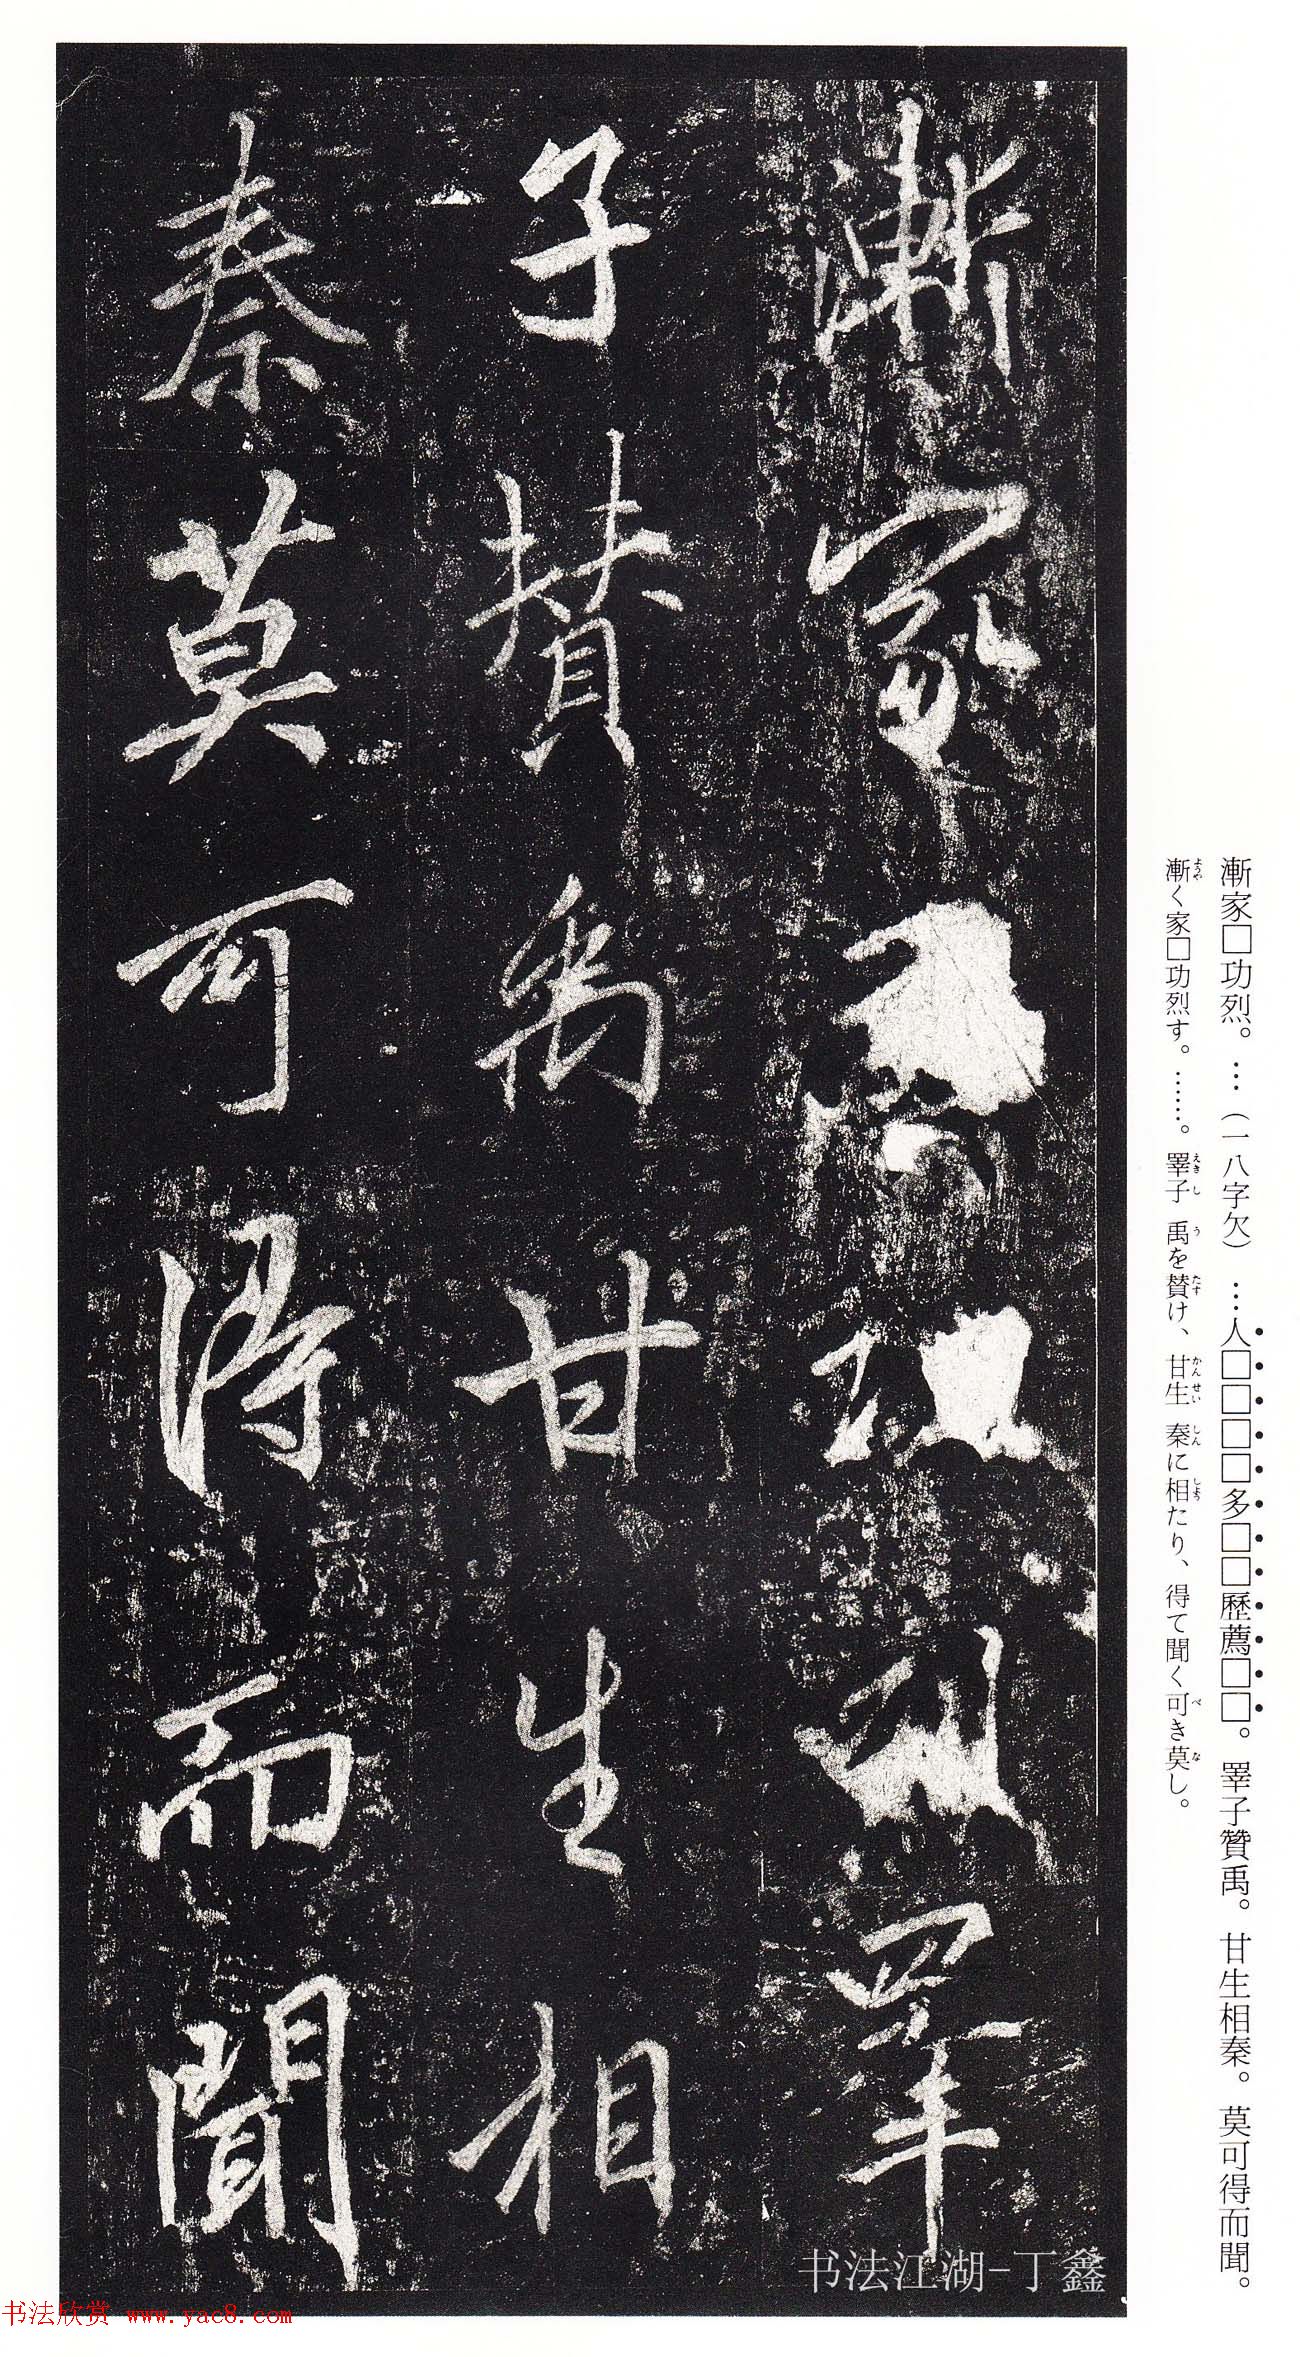 漸家□功烈。…（一八字欠）…人□□□□多□□歷薦□□。睪子贊禹。甘生相秦。莫可得而聞。
漸く家□功烈す。……。睪子 禹を賛け、甘生 秦に相たり、得て聞く可き莫し。
漸家功烈睪
子贊禹甘生相
秦莫可得而聞
书法江湖-丁鑫
书法欣赏 www.yac8.com